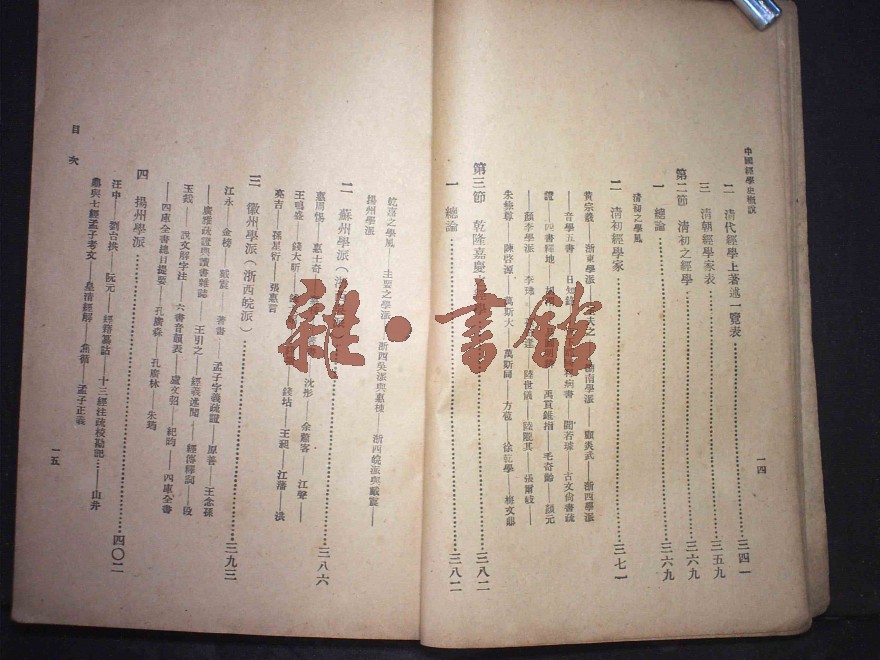 中國經學史概說
一四
二 清代經學上著述一覽表 三四一
三 清朝經學家表 三五九
第二節 清初之經學 三六九
一 總論 三六九
清初之學風
二 清初經學家 三七一
黃宗羲——浙東學派 湖南學派——顧炎武 浙西學派
音學五書 日知錄 利病書——閻若璩 古文尚書疏
證——四書釋地 禹貢錐指——毛奇齡——顏元
顏李學派 李塨 陸世儀——陸隴其——張爾岐——
朱彝尊——陳啓源——萬斯大——萬斯同——方苞——徐乾學——梅文鼎
第三節 乾隆嘉慶 經學 三八二
一 總論 三八二
乾嘉之學風——主要之學派——浙西吳派與惠棟——浙西皖派與戴震——
揚州學派
二 蘇州學派(浙西吳派) 三八六
惠周惕——惠士奇 沈彤——余蕭客——江聲——
王鳴盛——錢大昕 錢坫——王昶——江藩——洪
亮吉——孫星衍——張惠言
三 徽州學派(浙西皖派) 三九三
江永——金榜——戴震——著書——孟子字義疏證——原善——王念孫
——廣雅疏證與讀書雜誌——王引之——經義述聞——經傳釋詞——段
玉裁——說文解字注——六書音韻表——盧文弨——紀昀——四庫全書
——四庫全書總目提要——孔廣森——孔廣林——朱筠
四 揚州學派 四〇二
汪中——劉台拱——阮元——經籍纂詁——十三經注疏校勘記——山井
鼎與七經孟子考文——皇清經解——焦循——孟子正義
目次
一五
雜·書館